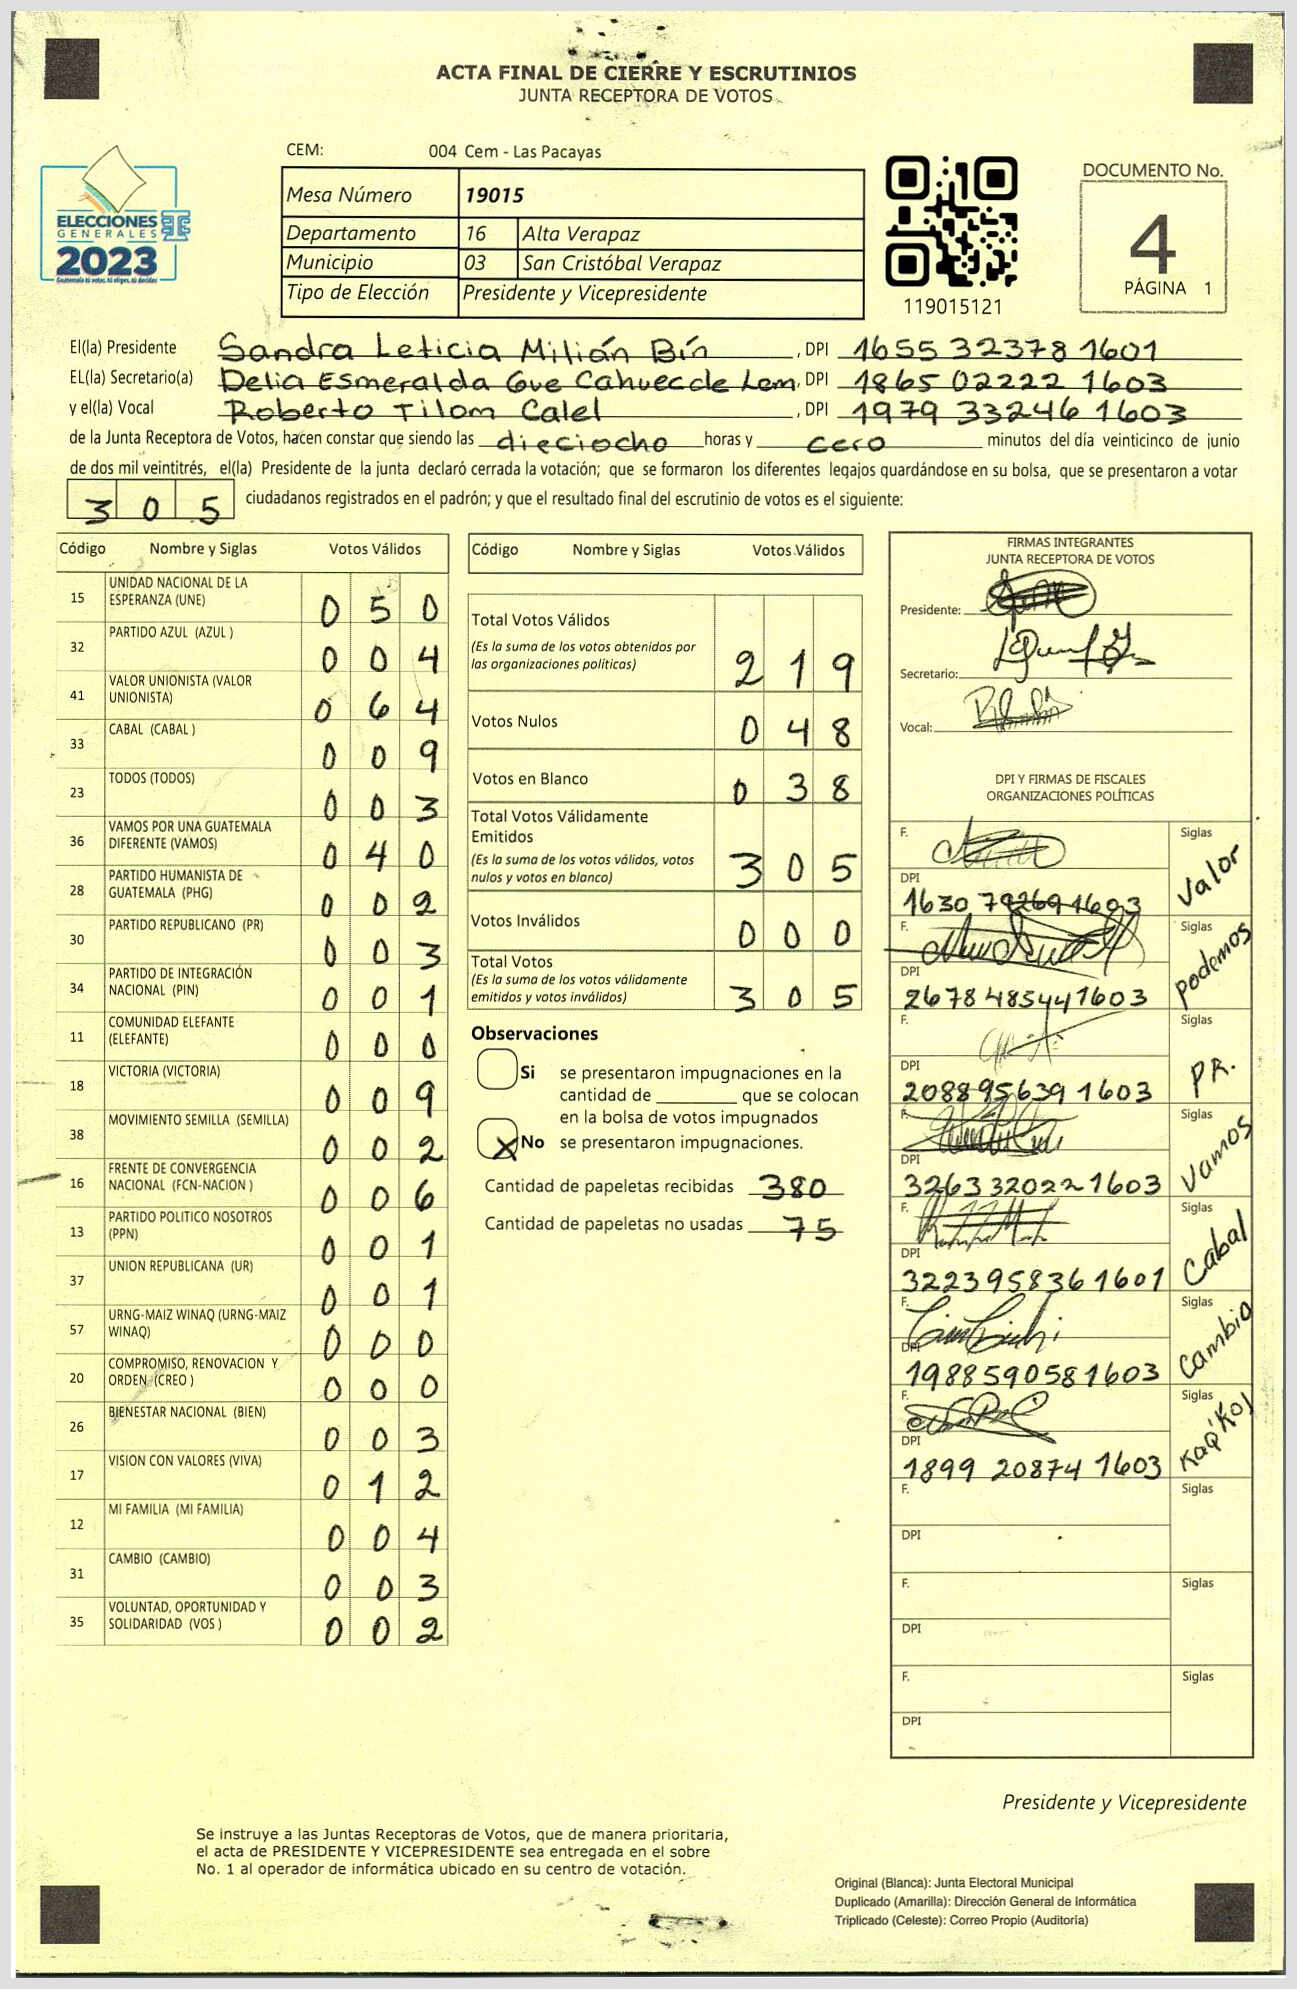 ACTA FINAL DE CIERRE Y ESCRUTINIOS
JUNTA RECEPTORA DE VOTOS
CEM: 004 Cem - Las Pacayas
Mesa Número 19015
Departamento 16 Alta Verapaz
Municipio 03 San Cristóbal Verapaz
Tipo de Elección Presidente y Vicepresidente
ELECCIONES
GENERALES
2023
119015121
DOCUMENTO No.
4
PÁGINA 1
El(la) Presidente Sandra Leticia Milián Bín, DPI 1655 32378 1601
EL(la) Secretario(a) Delia Esmeralda Gue Cahuec de Lem, DPI 1865 02222 1603
y el(la) Vocal Roberto Tilom Calel, DPI 1979 33246 1603
de la Junta Receptora de Votos, hacen constar que siendo las dieciocho horas y cero minutos del día veinticinco de junio
de dos mil veintitrés, el(la) Presidente de la junta declaró cerrada la votación; que se formaron los diferentes legajos quardándose en su bolsa, que se presentaron a votar
305 ciudadanos registrados en el padrón; y que el resultado final del escrutinio de votos es el siguiente:
Código Nombre y Siglas Votos Válidos
15 UNIDAD NACIONAL DE LA ESPERANZA (UNE) 0 5 0
32 PARTIDO AZUL (AZUL ) 0 0 4
41 VALOR UNIONISTA (VALOR UNIONISTA) 0 6 4
33 CABAL (CABAL ) 0 0 9
23 TODOS (TODOS) 0 0 3
36 VAMOS POR UNA GUATEMALA DIFERENTE (VAMOS) 0 4 0
28 PARTIDO HUMANISTA DE GUATEMALA (PHG) 0 0 2
30 PARTIDO REPUBLICANO (PR) 0 0 3
34 PARTIDO DE INTEGRACIÓN NACIONAL (PIN) 0 0 1
11 COMUNIDAD ELEFANTE (ELEFANTE) 0 0 0
18 VICTORIA (VICTORIA) 0 0 9
38 MOVIMIENTO SEMILLA (SEMILLA) 0 0 2
16 FRENTE DE CONVERGENCIA NACIONAL (FCN-NACION ) 0 0 6
13 PARTIDO POLITICO NOSOTROS (PPN) 0 0 1
37 UNION REPUBLICANA (UR) 0 0 1
57 URNG-MAIZ WINAQ (URNG-MAIZ WINAQ) 0 0 0
20 COMPROMISO, RENOVACION Y ORDEN (CREO ) 0 0 0
26 BIENESTAR NACIONAL (BIEN) 0 0 3
17 VISION CON VALORES (VIVA) 0 1 2
12 MI FAMILIA (MI FAMILIA) 0 0 4
31 CAMBIO (CAMBIO) 0 0 3
35 VOLUNTAD, OPORTUNIDAD Y SOLIDARIDAD (VOS ) 0 0 2
Código Nombre y Siglas Votos Válidos
Total Votos Válidos
(Es la suma de los votos obtenidos por
las organizaciones políticas) 2 1 9
Votos Nulos 0 4 8
Votos en Blanco 0 3 8
Total Votos Válidamente
Emitidos
(Es la suma de los votos válidos, votos
nulos y votos en blanco) 3 0 5
Votos Inválidos 0 0 0
Total Votos
(Es la suma de los votos válidamente
emitidos y votos inválidos) 3 0 5
Observaciones
Si se presentaron impugnaciones en la
cantidad de ________ que se colocan
en la bolsa de votos impugnados
X No se presentaron impugnaciones.
Cantidad de papeletas recibidas 380
Cantidad de papeletas no usadas 75
FIRMAS INTEGRANTES
JUNTA RECEPTORA DE VOTOS
Presidente:
Secretario:
Vocal:
DPI Y FIRMAS DE FISCALES
ORGANIZACIONES POLÍTICAS
F. Siglas Valor
DPI 1630 79269 1603
F. Siglas podemos
DPI 2678 48544 1603
F. Siglas PR.
DPI 2088 95639 1603
F. Siglas Vamos
DPI 3263 32022 1603
F. Siglas Cabal
DPI 3223 95836 1601
F. Siglas Cambio
DPI 1988 59058 1603
F. Siglas
DPI 1899 20874 1603
F. Siglas
DPI
F. Siglas
DPI
F. Siglas
DPI
Presidente y Vicepresidente
Se instruye a las Juntas Receptoras de Votos, que de manera prioritaria,
el acta de PRESIDENTE Y VICEPRESIDENTE sea entregada en el sobre
No. 1 al operador de informática ubicado en su centro de votación.
Original (Blanca): Junta Electoral Municipal
Duplicado (Amarilla): Dirección General de Informática
Triplicado (Celeste): Correo Propio (Auditoría)